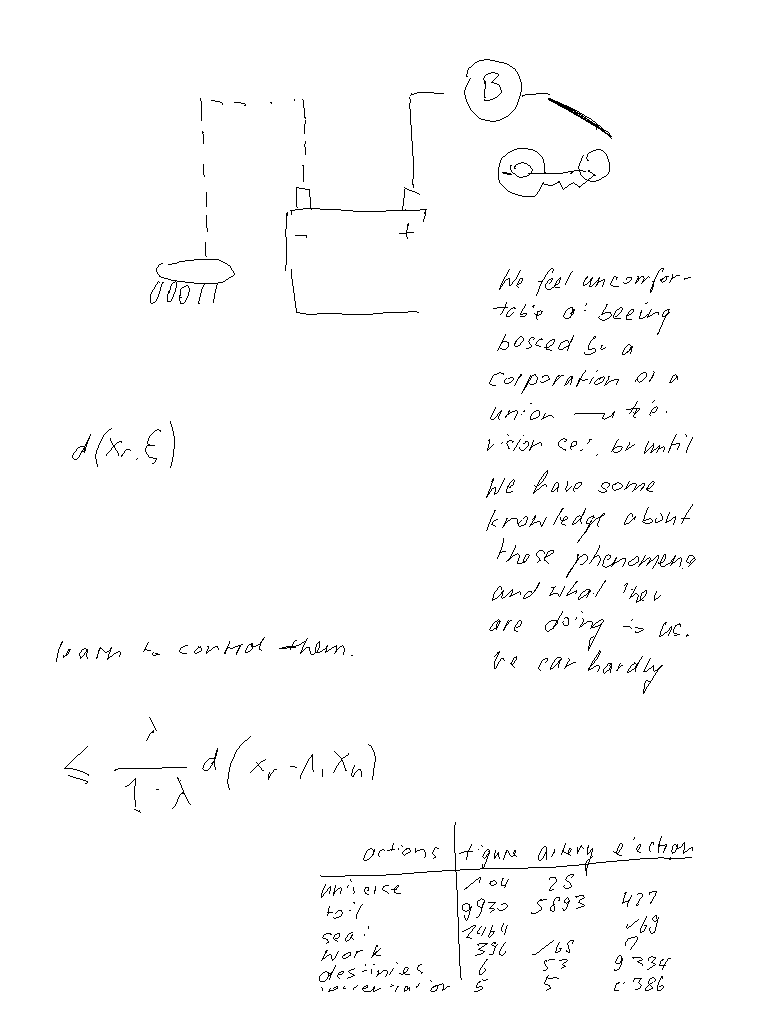 B
- +
We feel uncomfor-
table at beeing
bossed by a
corporation or a
union
vision set, but until
we have some
knowledge about
these phenomena
and what they
are doing to us.
we can hardly
learn to control them.
d(xᵣ, ξ)
≤ λ/(1-λ) d(xᵣ-1, xₙ)
actions figure artery ejection
universe 104 25
toil 9930 5893 427
seal 2464 169
work 396 165 7
destinies 6 53 9334
5 5 386